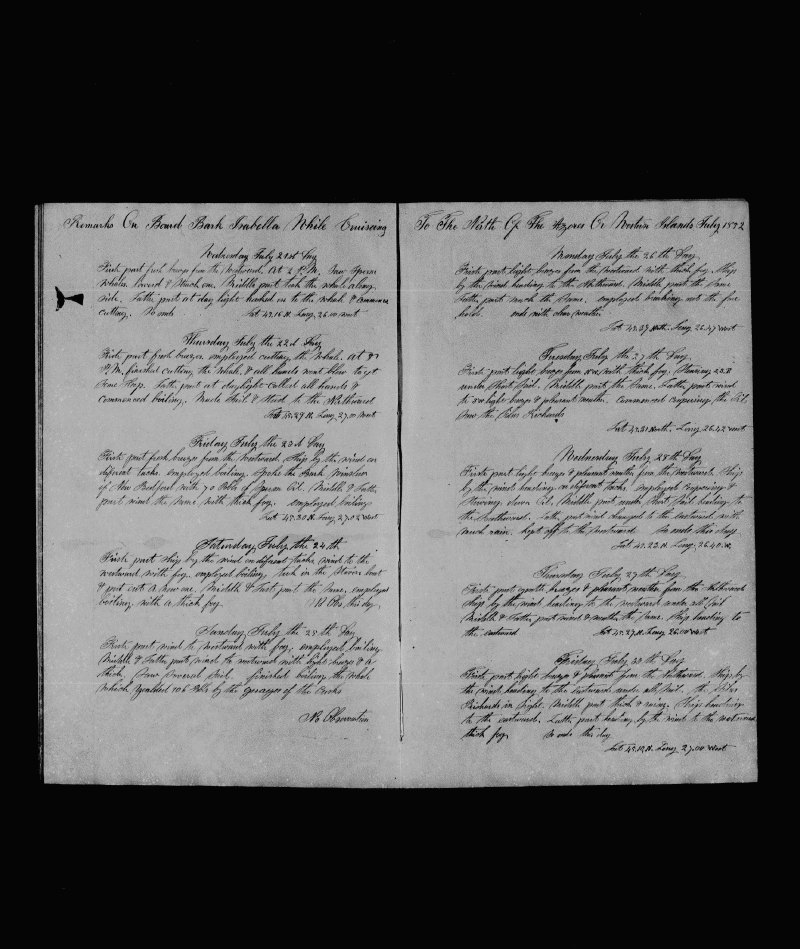 Remarks On Board Bark Isabella While Cruiseing
Wednesday July 21st Day
First part fresh breeze from the Westward. At 2 P.M. Saw Sperm
Whales Lowerd & Struck one. Middle part took the whale along
side. Latter part at day light hooked on to the whale & Commence
cutting. So ends Lat 45.16 N. Long. 26.00 West
Thursday July the 22d Day
First part fresh breezes employed cutting the Whale. At 8
P.M. finished cutting the Whale. & all hands went blow to get
Some Sleep. Latter part at daylight called all hands &
Commenced boiling. Made Sail & Stood to the Northward
Lat 45.29 N. Long 27.00 West
Friday July the 23d Day
First part fresh breeze from the Westward. Ship by the wind on
different tacks. employed boiling. Spoke the Bark
of New Bedford with 70 Bbls of Sperm Oil. Middle & Latter
part wind the Same, with thick fog. employed boiling
Lat 45.30 N. Long 27.02 West
Saturday July the 24th
First part Ship by the wind on different tacks, wind to the
westward with fog. employed boiling. took in the boat
& put out a new one. Middle & Last part the Same, employed
boiling with a thick fog No Obs, this day
Sunday July the 25th Day
First part wind to Westward with fog. employed boiling
Middle & Latter part wind to westward with light breeze & a
thick. Saw Several Sail. finished boiling the Whale
Which Yealded 106 Bbls by the of the Casks
No Observation
To The North Of The Azores Or Western Islands July 1872
Monday July the 26th Day
First part light breeze from the Westward with thick fog. Ship
by the wind heading to the Northward. Middle part the Same
Latter part much the Same. employed breaking out the fore
holds. ends with clear weather
Lat 45.39 North. Long 26.47 West
Tuesday July the 27th Day
First part light breeze from SSW with thick fog. Steering
under Short Sail. Middle part the Same. Latter part wind
to SSW light breeze & pleasent weather. Commenced coopering the Oil.
Saw the Silas Richards
Lat 45.31 North. Long 26.42 West
Wednesday July 28th Day
First part light breeze & pleasent weather from the Westward. Ship
by the wind heading on different tacks. employed coopering &
Stowing down Oil. Middle part under Short Sail heading to
the Southward. Latter part wind to the eastward with
much rain. kept off to the Westward. So ends this day
Lat 45.22 N. Long. 26.40 W.
Thursday July 29th Day
First part gentle breezes & pleasant weather from the Northward
Ship by the wind heading to the westward under all Sail
Middle & Latter part wind & weather the Same. Ship heading to
the eastward Lat 45.27 N. Long 26.00 West
Friday July 30th Day
First part light breeze & pleasent from the Northward. Ship by
the wind heading to the Eastward under all Sail. the Silas
Richards in Sight. Middle part thick & rainy. Ship heading
to the eastward. Latter part heading by the wind to the westward
thick fog. So ends this day
Lat 45.19 N. Long 27.00 West